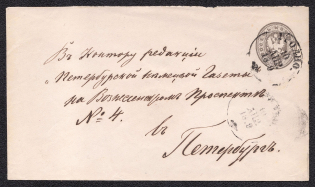 Въ Контору редакціи
"Петербургской Нѣмецкой Газеты
на Вознесенскомъ Проспектѣ
№ 4.
въ
Петербургъ.